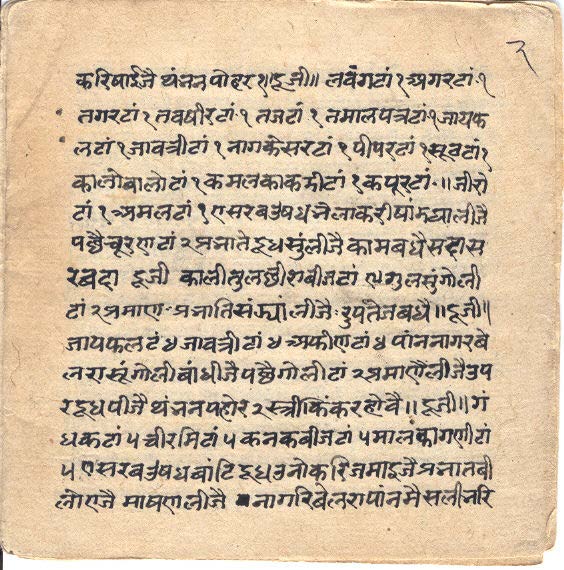 २
करिषाईजै थंनन पोहर १। दूजी॥ लवंगटां १ अगरटां १
तगरटां १ तवषीरटां १ तजटां १ तमालपत्रटां १ जायफ
लटां १ जावत्रीटां १ नागकेसरटां १ पीपरटां १ सूवटां १
कालोवालोटां १ कमलकाकडीटां १ कपूरटां ॥ जीरो
टां १ अमलटां १ एसरबउषध
पछैचूरणटां २ प्रभाते दूधसुंलीजै कामबधैसदास
रबदा दूजी काली तुलछीराबीजटां १ गुलसुंगोली
टां २ प्रमाण प्रभातिसंझ्यांलीजै रुपतेजबधै॥ दूजी॥
जायफलटं ४ जावत्रीटां ४ अफीणटां ४ पांननागरबे
लरासूंगोलीबांधीजैपछैगोलीटां २ प्रमाणैलीजैउप
रदूधपीजै थंननपहोर २ स्त्रीकिंकरहोवै॥ दूजी॥ गं
धकटां ५ चीरमिटां ५ कनकबीजटां ५ मालकांगणीटां
५ एसरबउषधबांटिदूधउनोकरिजमाइजैप्रभातबी
लोएजै माषणलीजै नागरिबेलरापांनमैसलीनरि